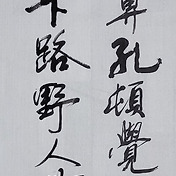 鼻孔頓覺
下路野人